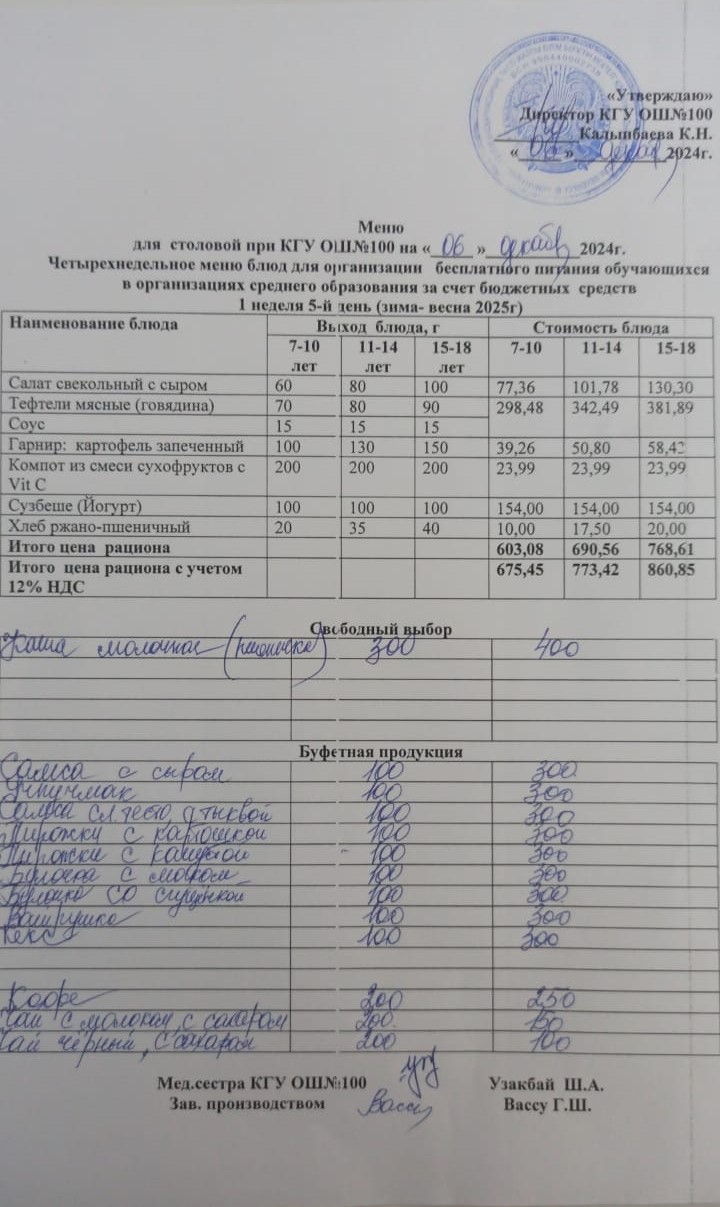 «Утверждаю»
Директор КГУ ОШ№100
Калыбаева К.Н.
« 06 » декаб 2024г.
Меню
для столовой при КГУ ОШ№100 на « 06 » декаб 2024г.
Четырехнедельное меню блюд для организации бесплатного питания обучающихся
в организациях среднего образования за счет бюджетных средств
1 неделя 5-й день (зима- весна 2025г)
Наименование блюда Выход блюда, г Стоимость блюда
7-10 лет 11-14 лет 15-18 лет 7-10 11-14 15-18
Салат свекольный с сыром 60 80 100 77,36 101,78 130,30
Тефтели мясные (говядина) 70 80 90 298,48 342,49 381,89
Соус 15 15 15
Гарнир: картофель запеченный 100 130 150 39,26 50,80 58,42
Компот из смеси сухофруктов с 200 200 200 23,99 23,99 23,99
Vit C
Сузбеше (Йогурт) 100 100 100 154,00 154,00 154,00
Хлеб ржано-пшеничный 20 35 40 10,00 17,50 20,00
Итого цена рациона 603,08 690,56 768,61
Итого цена рациона с учетом 675,45 773,42 860,85
12% НДС
Свободный выбор
Каша молочная 300 400
Буфетная продукция
Самса с сыром 100 300
Учпучмак 100 300
Самса сл.тесто с тыквой 100 300
Пирожки с картошкой 100 300
Пирожки с капустой 100 300
Булочка с маком 100 300
Булочка со сгущенкой 100 300
Ватрушка 100 300
Кекс 100 300
Кофе 200 250
Чай с молоком, с сахаром 200 150
Чай чёрный, с сахаром 200 100
Мед.сестра КГУ ОШ№100 Узакбай Ш.А.
Зав. производством Вассу Вассу Г.Ш.